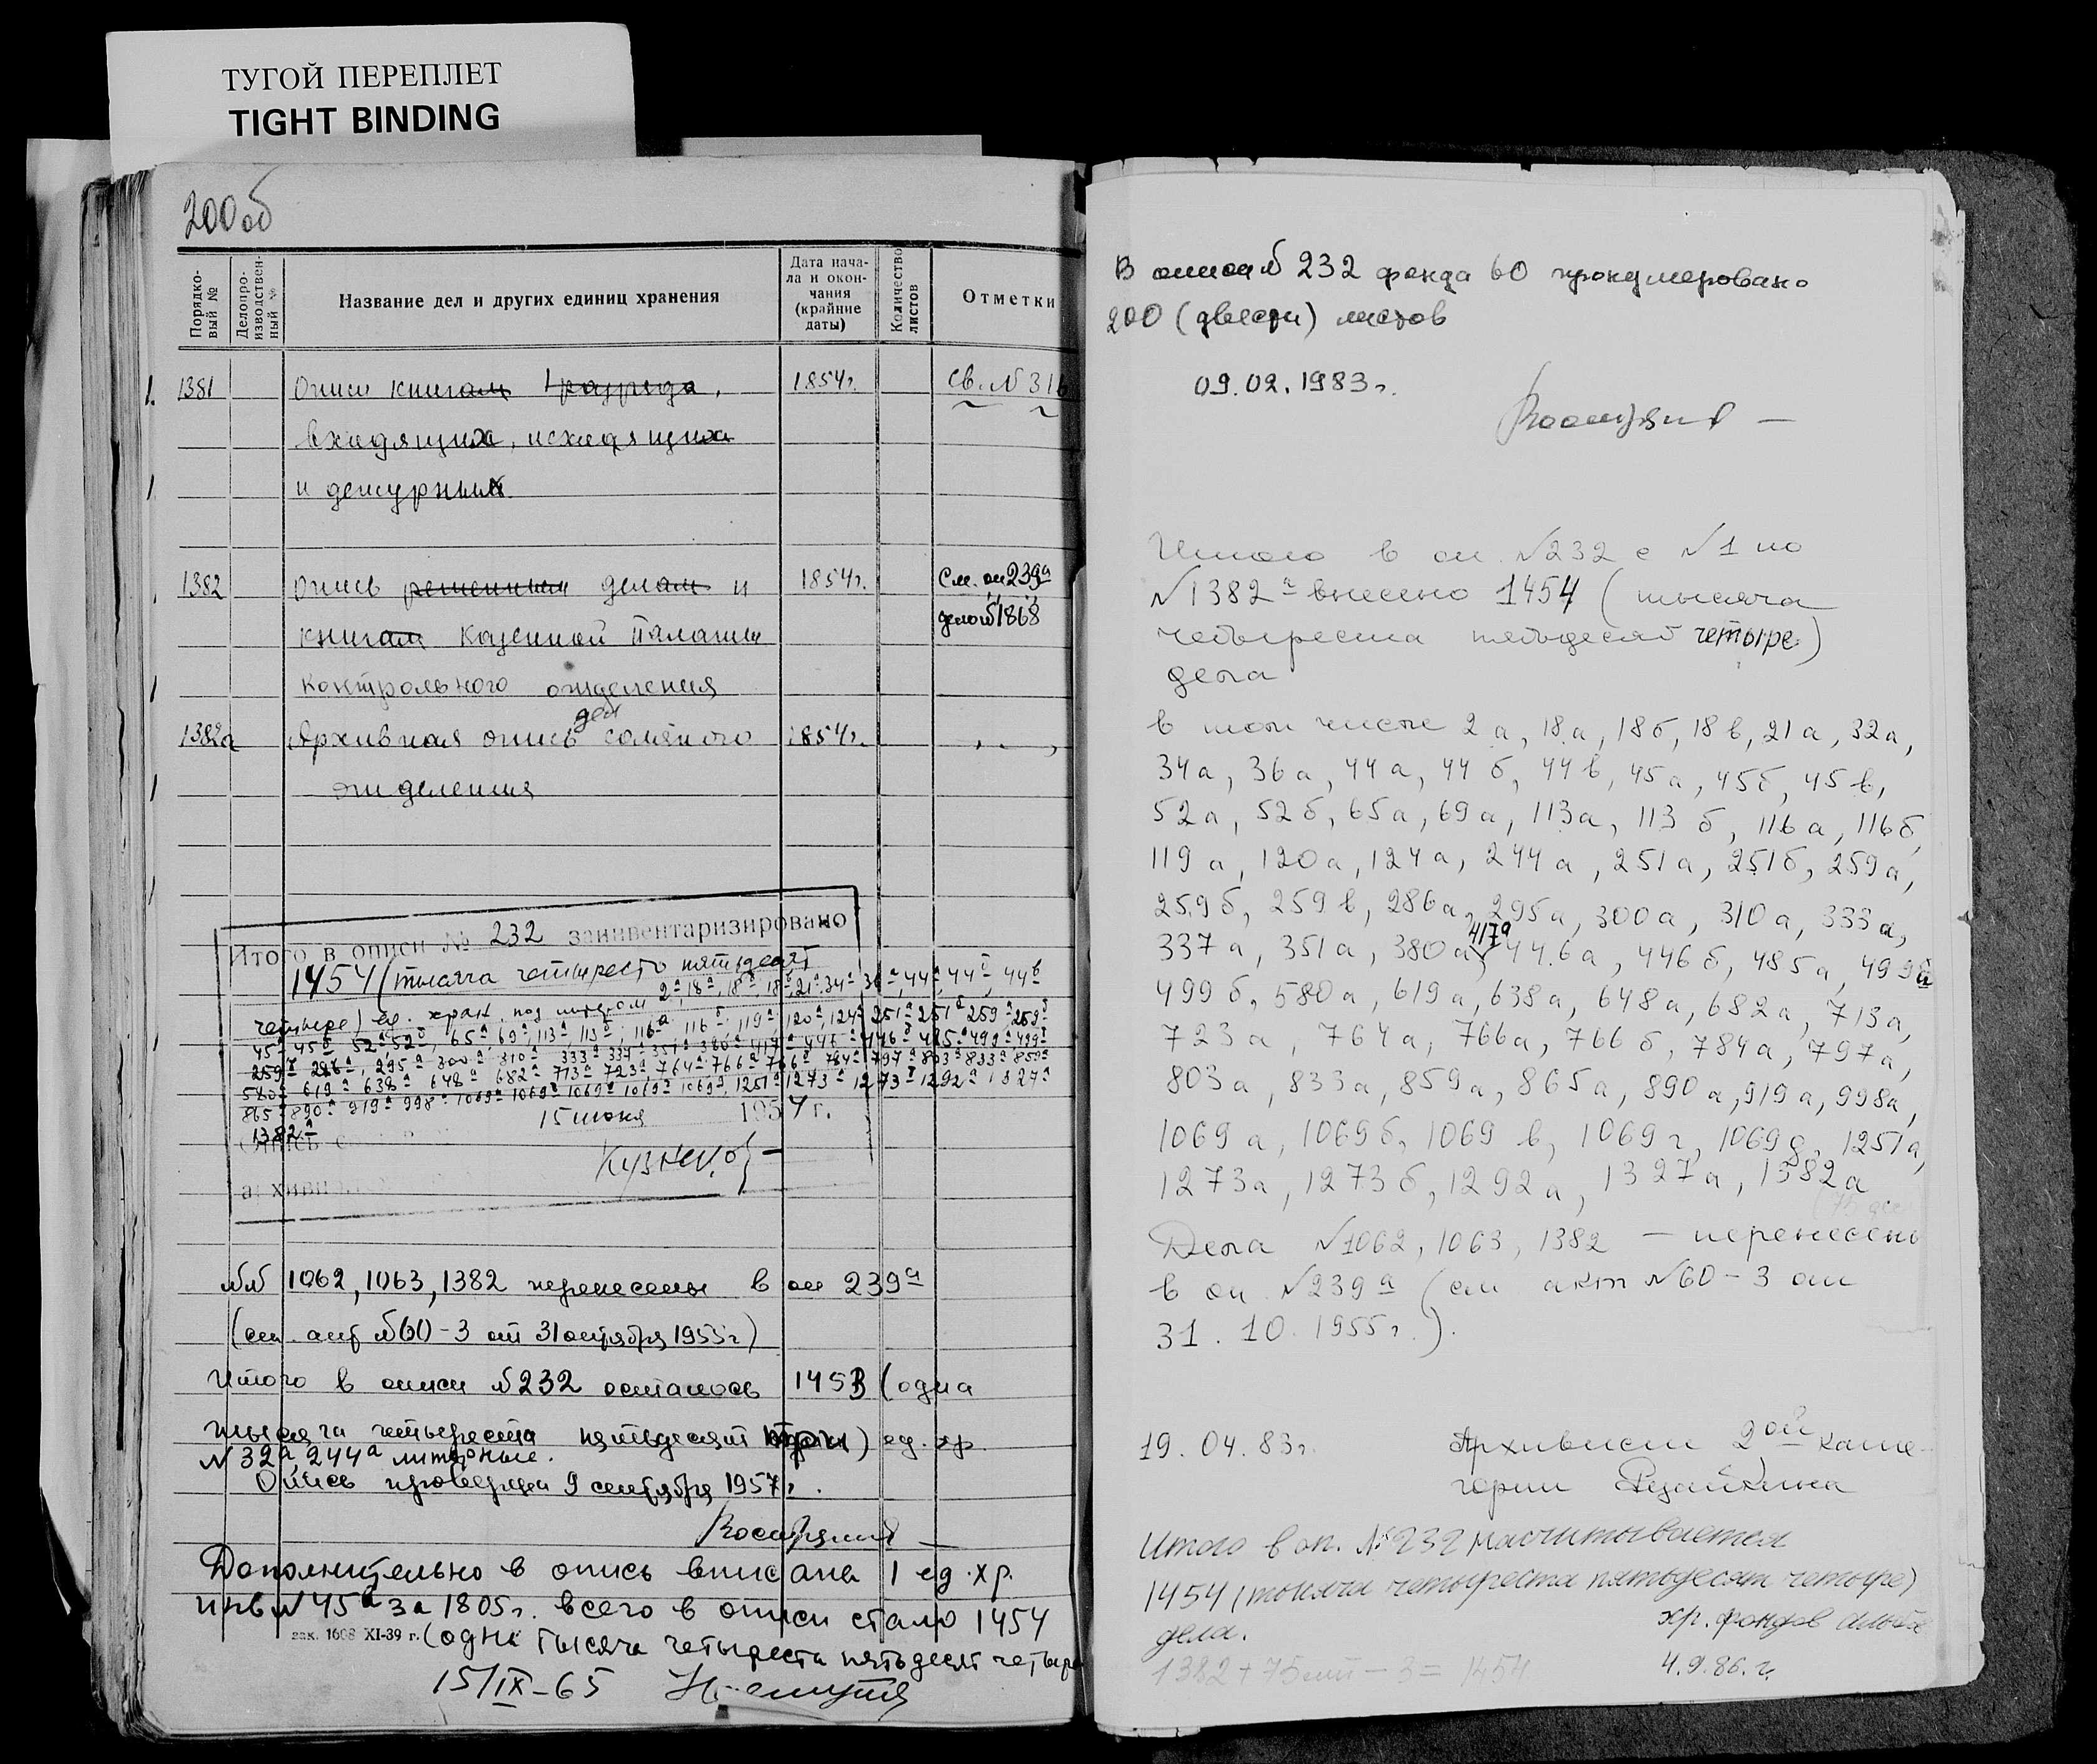 ТУГОЙ ПЕРЕПЛЕТ
TIGHT BINDING
200 об
Порядко-
вый №
Делопро-
изводствен-
ный №
Название дел и других единиц хранения
Дата нача-
ла и окон-
чания
(крайние
даты)
Количество
листов
Отметки
1381 Описи книгам 1 разряда, 1854 г. св. № 316
входящих, исходящих
и дежурных
1382 Опись решенным делам и 1854 г. См. оп 239а
книгам Казенной Палаты дело № 1868
контрольного отделения
дел
1382а Архивная опись соляного 1854 г. „
отделения
Итого в описи № 232 заинвентаризировано
1454 (тысяча четыреста пятьдесят
четыре) ед. хран. под литером 2а, 18а, 18б, 18в, 21а, 34а 36а, 44а, 44б, 44в
45а 45б 52а, 52б, 65а 69а, 113а, 113б, 116а, 116б, 119а, 120а, 124а 251а 251б 259а 259б
259в 286а, 295а 300а 310а 333а 337а 351а 380а 417а 446а 446б 485а 499а 499б
580а 619а 638а 648а 682а 713а 723а, 764а 766а 766б 784а 797а 803а 833а 859а
865а 890а 919а 998а 1069а 1069б 1069в 1069г 1069д, 1251а 1273а 1273б 1292а 1327а
1382а
15 июня 1954 г.
Опись с
архивн
Кузнецов
№№ 1062, 1063, 1382 перенесены в оп 239а
(см. акт № 60-3 от 31 октября 1955 г)
Итого в описи № 232 осталось 1453 (одна
тысяча четыреста пятьдесят три) ед. хр.
№ 32а, 244а литерные.
Опись проверена 9 сентября 1957 г.
Дополнительно в опись вписана 1 ед. хр.
инв № 45в за 1805 г. всего в описи стало 1454
зак. 1608 XI-39 г. (одна тысяча четыреста пятьдесят четыре
15/IX-65
В описи № 232 фонда 60 пронумеровано
200 (двести) листов
09.02.1983 г.
Итого в оп. № 232 с № 1 по
№ 1382а внесено 1454 (тысяча
четыреста пятьдесят четыре)
дела
в том числе 2а, 18а, 18б, 18в, 21а, 32а,
34а, 36а, 44а, 44б, 44в, 45а, 45б, 45в,
52а, 52б, 65а, 69а, 113а, 113б, 116а, 116б,
119а, 120а, 124а, 244а, 251а, 251б, 259а,
259б, 259в, 286а, 295а, 300а, 310а, 333а,
337а, 351а, 380а, 417а 446а, 446б, 485а, 499а
499б, 580а, 619а, 638а, 648а, 682а, 713а,
723а, 764а, 766а, 766б, 784а, 797а,
803а, 833а, 859а, 865а, 890а, 919а, 998а,
1069а, 1069б, 1069в, 1069г, 1069д, 1251а,
1273а, 1273б, 1292а, 1327а, 1382а
(75 дел
Дела № 1062, 1063, 1382 — перенесено
в оп. № 239а (см акт № 60-3 от
31.10.1955 г.).
19.04.83 г. Архивист 2ой кате-
гории
Итого в оп. № 232 насчитывается
1454 (тысяча четыреста пятьдесят четыре)
дела. хр. фондов
1382 + 75 лит - 3 = 1454 4.9.86. г.